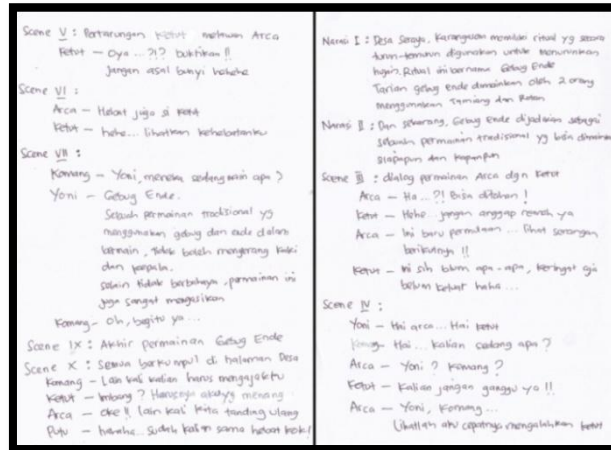 Scene V : Pertarungan Ketut melawan Arca
Ketut – Oya ...?!? buktikan !!
Jangan asal bunyi hehehe
Scene VI :
Arca – Hebat juga si Ketut
Ketut – hehe... lihatkan kehebatanku
Scene VII :
Komang – Yoni, mereka sedang main apa ?
Yoni – Gebug Ende.
Sebuah permainan tradisional yg
menggunakan gebug dan ende dalam
bermain, tidak boleh menyerang kaki
dan kepala.
selain tidak berbahaya, permainan ini
juga sangat mengasikan
Komang – Oh, begitu ya ...
Scene IX : Akhir permainan Gebug Ende
Scene X : Semua berkumpul di halaman Desa
Komang – Lain kali kalian harus mengajakku
Ketut – ? Harusnya aku yg menang
Arca – oke !! lain kali kita tanding ulang
Putu – hahaha... sudah kalian sama hebat kok !
Narasi I : Desa Seraya, Karangasem memiliki ritual yg secara
turun-temurun digunakan untuk menurunkan
hujan. Ritual ini bernama Gebug Ende
Tarian gebug ende dimainkan oleh 2 orang
menggunakan Tamiang dan Rotan
Narasi II : Dan sekarang, Gebug Ende dijadikan sebagai
sebuah permainan tradisional yg bisa dimainkan
siapapun dan kapanpun
Scene III : dialog permainan Arca dgn Ketut
Arca – Ha ...?! Bisa ditahan !
Ketut – Hehe.. jangan anggap remeh ya
Arca – Ini baru permulaan ... lihat serangan
berikutnya !!
Ketut – ini sih belum apa-apa, keringat aja
belum keluar haha ...
Scene IV :
Yoni – Hai arca... Hai ketut
Komang – Hai ... kalian sedang apa ?
Arca – Yoni ? Komang ?
Ketut – Kalian jangan ganggu ya !!
Arca – Yoni, Komang...
Lihatlah aku cepatnya mengalahkan ketut